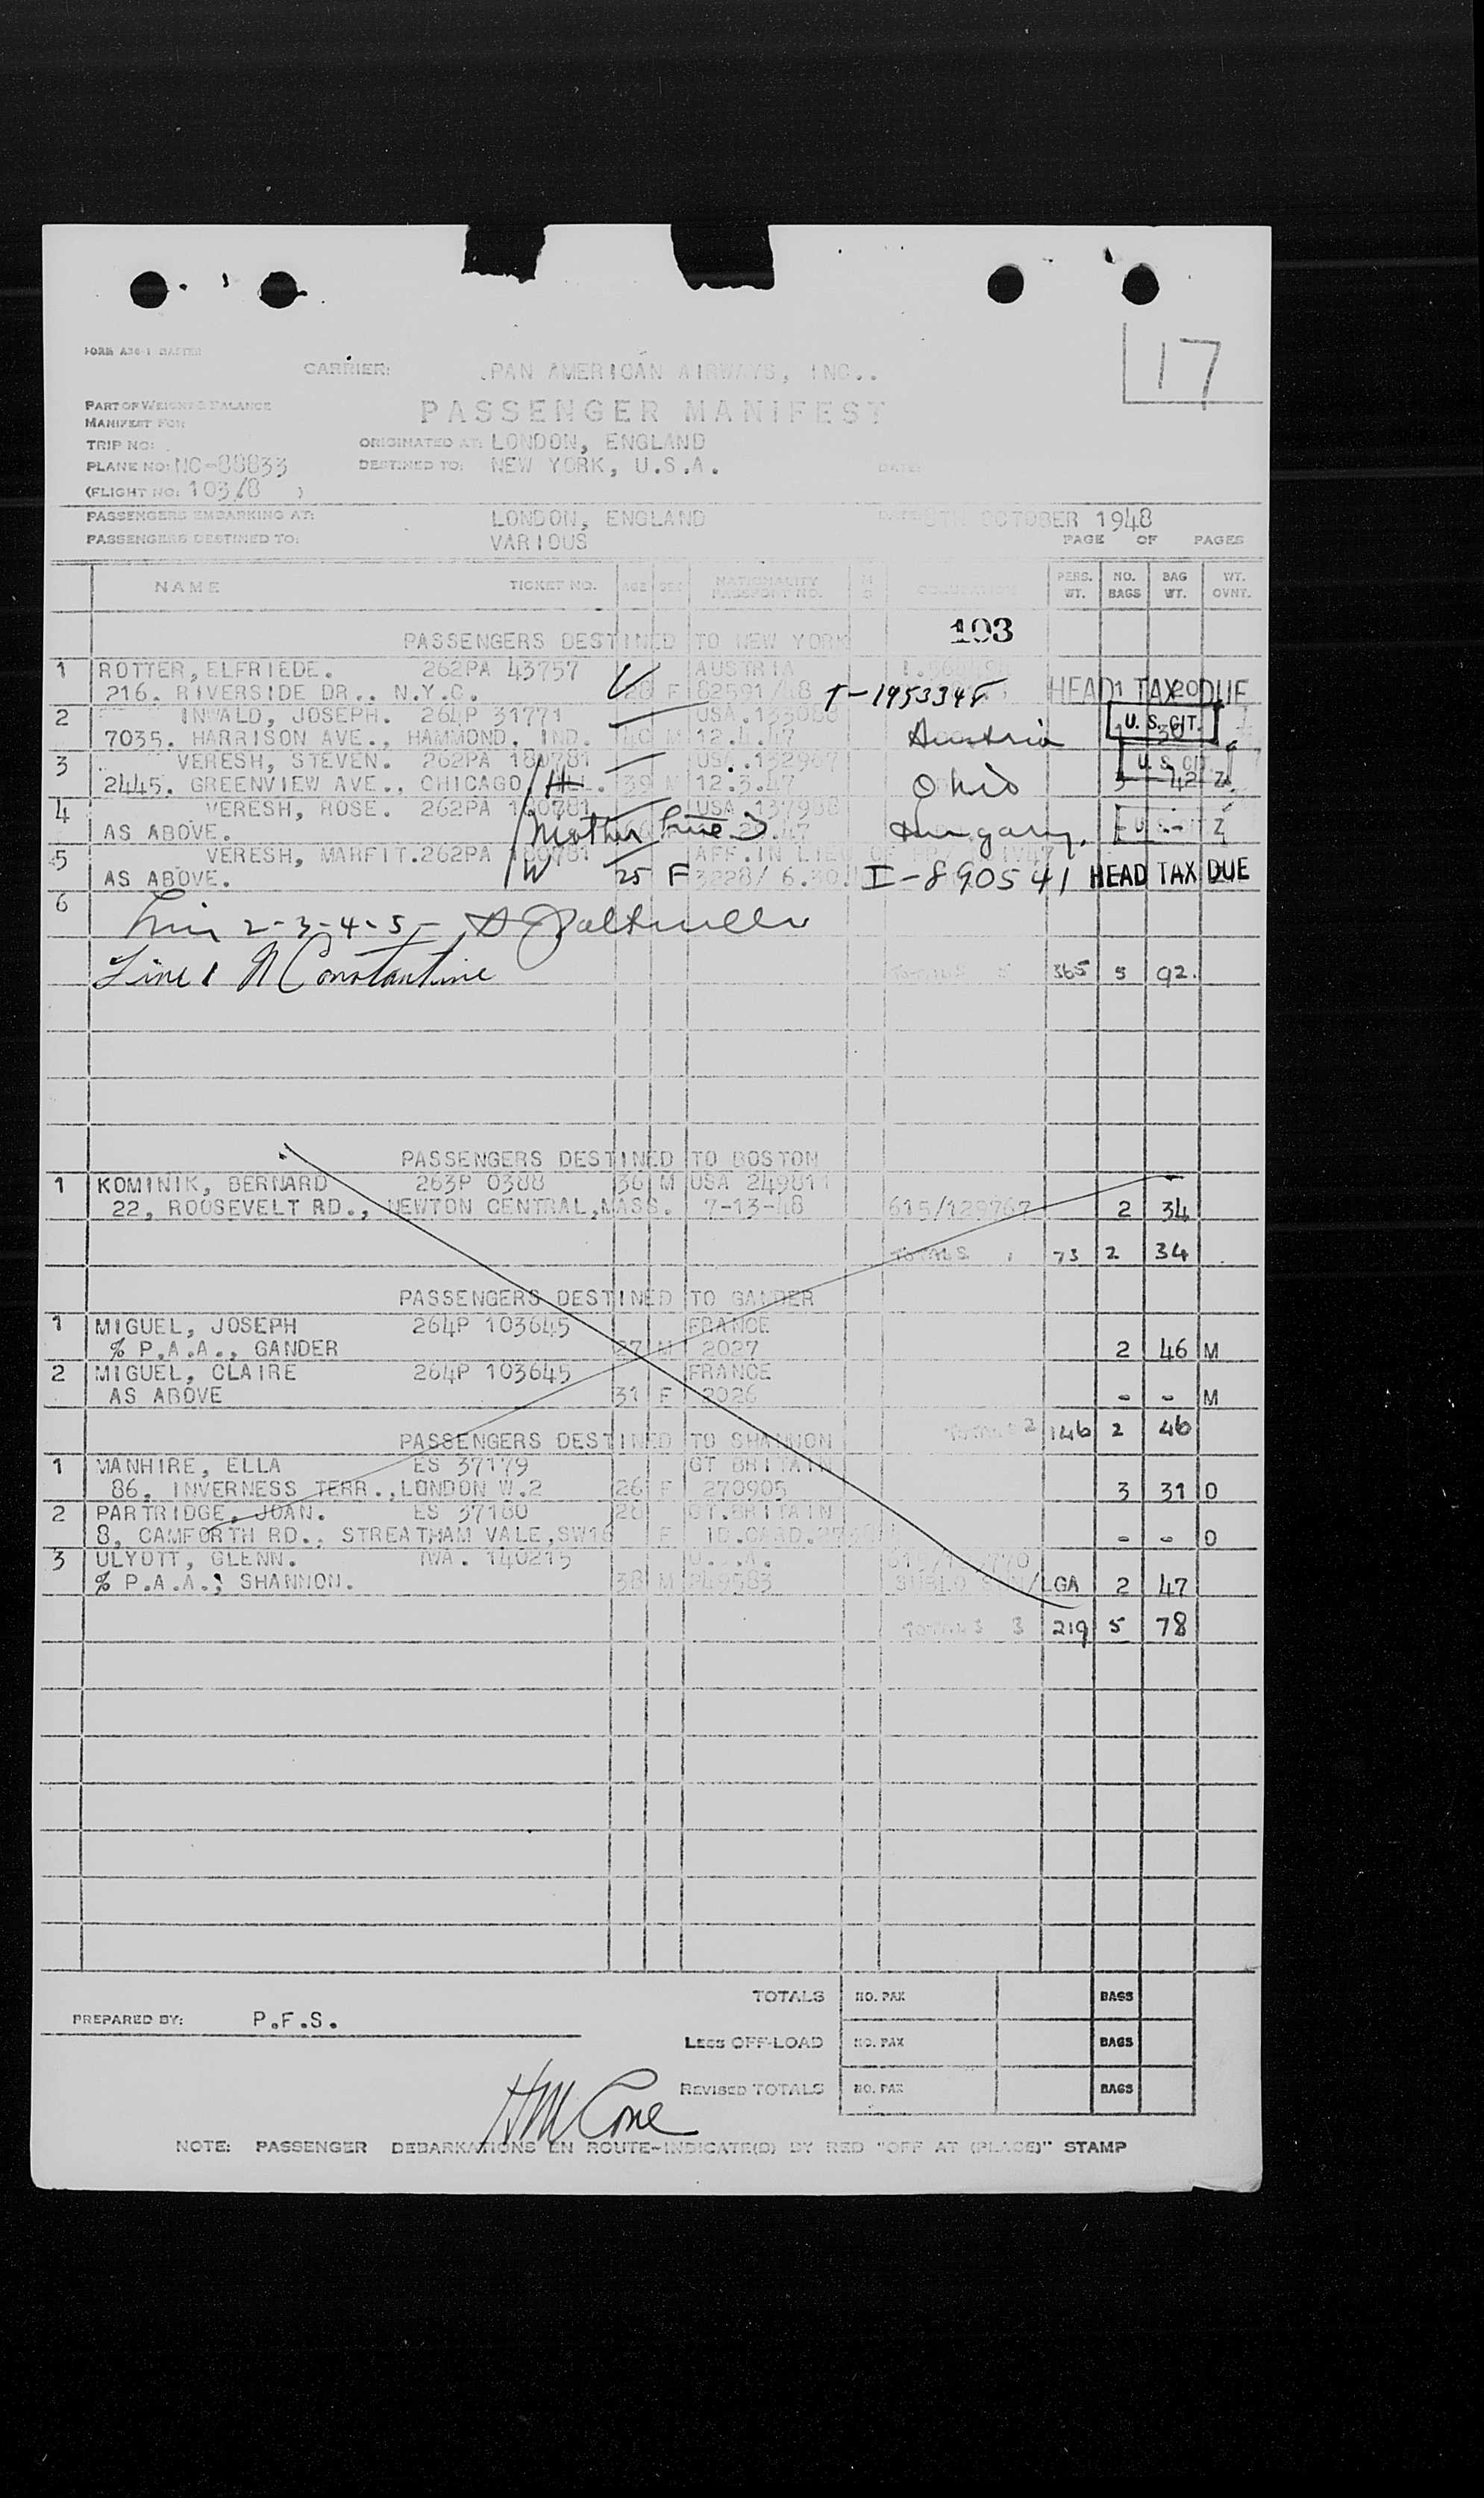 FORM A36-1 MASTER
17
CARRIER: PAN AMERICAN AIRWAYS, INC..
PART OF WEIGHT & BALANCE
MANIFEST FOR
PASSENGER MANIFEST
TRIP NO:
ORIGINATED AT: LONDON, ENGLAND
PLANE NO: NC-88833
DESTINED TO: NEW YORK, U.S.A. DATE:
(FLIGHT NO: 103/8 )
PASSENGERS EMBARKING AT: LONDON, ENGLAND OCTOBER 1948
PASSENGERS DESTINED TO: VARIOUS PAGE OF PAGES
NAME TICKET NO. AGE SEX NATIONALITY PASSPORT NO. OCCUPATION PERS. WT. NO. BAGS BAG WT. WT. OVNT.
PASSENGERS DESTINED TO NEW YORK 103
1 ROTTER, ELFRIEDE. 262PA 43757 AUSTRIA
216. RIVERSIDE DR.. N.Y.C. F 82591/48 T-1953348 HEAD TAX DUE 1 20
2 INWALD, JOSEPH. 264P 31771 USA. U.S. CIT.
7035. HARRISON AVE., HAMMOND. IND. 40 M 12.4.47 Austria
3 VERESH, STEVEN. 262PA 180781 USA. 132967 U.S. CIT
2445. GREENVIEW AVE., CHICAGO ILL. H 39 M 12.3.47 Ohio 3 42 Z
4 VERESH, ROSE. 262PA 180781 USA 137988
AS ABOVE. Mother Line 3 Hungary. U.S. CIT - Z
5 VERESH, MARFIT. 262PA 180781 AFF. IN LIEU OF PP.
AS ABOVE. W 25 F 3228/ 6.30. I-890541 HEAD TAX DUE
6 Line 2-3-4-5-
Line 1 N Constantine
TOTALS 5 365 5 92.
PASSENGERS DESTINED TO BOSTON
1 KOMINIK, BERNARD 263P 0388 36 M USA 249811
22, ROOSEVELT RD., NEWTON CENTRAL, MASS. 7-13-48 615/129767 2 34
TOTALS 1 73 2 34
PASSENGERS DESTINED TO GANDER
1 MIGUEL, JOSEPH 264P 103645 FRANCE
% P.A.A., GANDER 27 M 2027 2 46 M
2 MIGUEL, CLAIRE 264P 103645 FRANCE
AS ABOVE 31 F 2026 - - M
TOTALS 2 146 2 46
PASSENGERS DESTINED TO SHANNON
1 MANHIRE, ELLA ES 37179 GT BRITAIN
86. INVERNESS TERR.., LONDON W.2 26 F 270905 3 31 O
2 PARTRIDGE, JOAN. ES 37180 28 GT.BRITAIN
8, CAMFORTH RD., STREATHAM VALE, SW16 F ID.CARD. - - O
3 ULYOTT, GLENN. TWA. 140215 U.S.A.
% P.A.A., SHANNON. 38 M LGA 2 47
TOTALS 3 219 5 78
TOTALS NO. PAX BAGS
PREPARED BY: P.F.S.
LESS OFF-LOAD NO. PAX BAGS
REVISED TOTALS NO. PAX BAGS
HM Cone
NOTE: PASSENGER DEBARKATIONS EN ROUTE-INDICATE(D) BY RED "OFF AT (PLACE)" STAMP